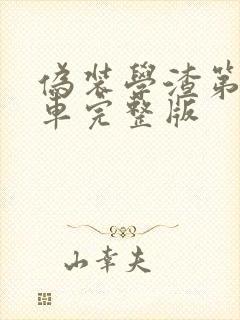 偽裝學渣第
車完整版
山幸夫